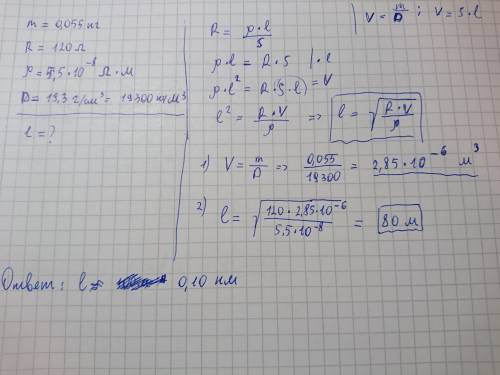 m = 0,055 кг
R = 120 Ω
ρ = 5,5·10⁻⁸ Ω·м
D = 19,3 г/см³ = 19300 кг/м³
l = ?
R = ρ·l/S
ρ·l = R·S |·l
ρ·l² = R·(S·l) = V
l² = R·V/ρ => l = √(R·V/ρ)
V = m/D ; V = S·l
1) V = m/D => 0,055/19300 = 2,85·10⁻⁶ м³
2) l = √(120·2,85·10⁻⁶/5,5·10⁻⁸) = 80 м
Ответ: l = 0,10 км